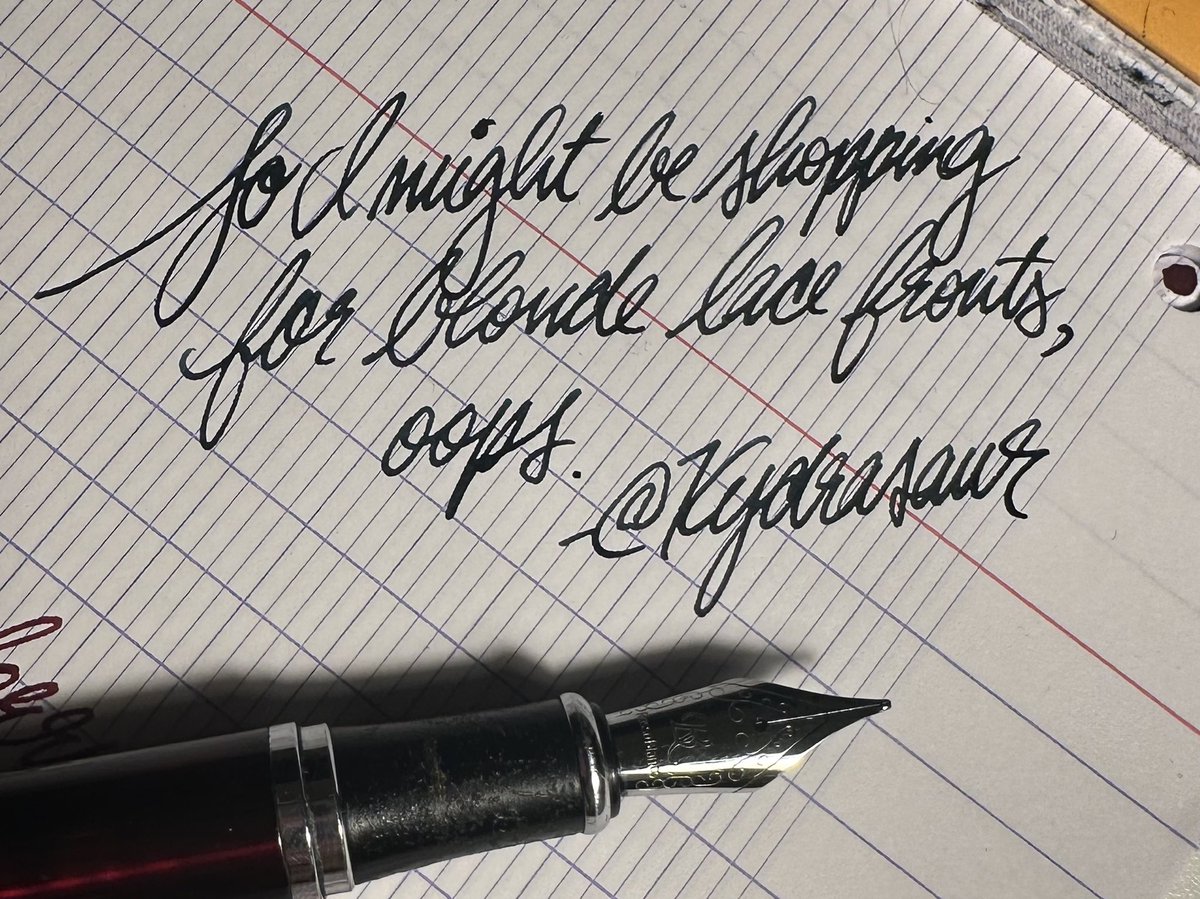 So I might be shopping
for blonde lace fronts,
oops.
@Kydrasaur